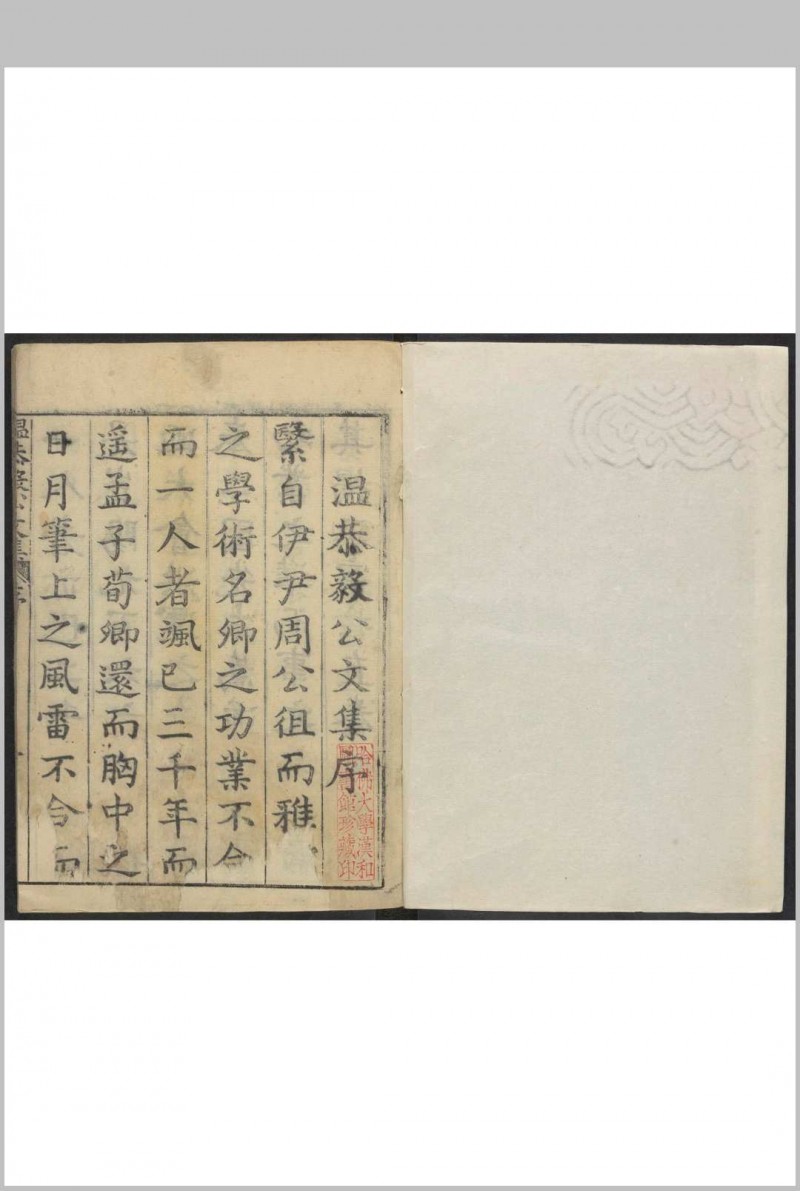 温恭毅公文集序
繄自伊尹周公徂而雅
之學術名卿之功業不合
而一人者颯已三千年而
遥孟子荀卿還而胸中之
日月筆上之風雷不合而
温恭毅公文集
序
哈佛大學漢和
圖書館珍藏印